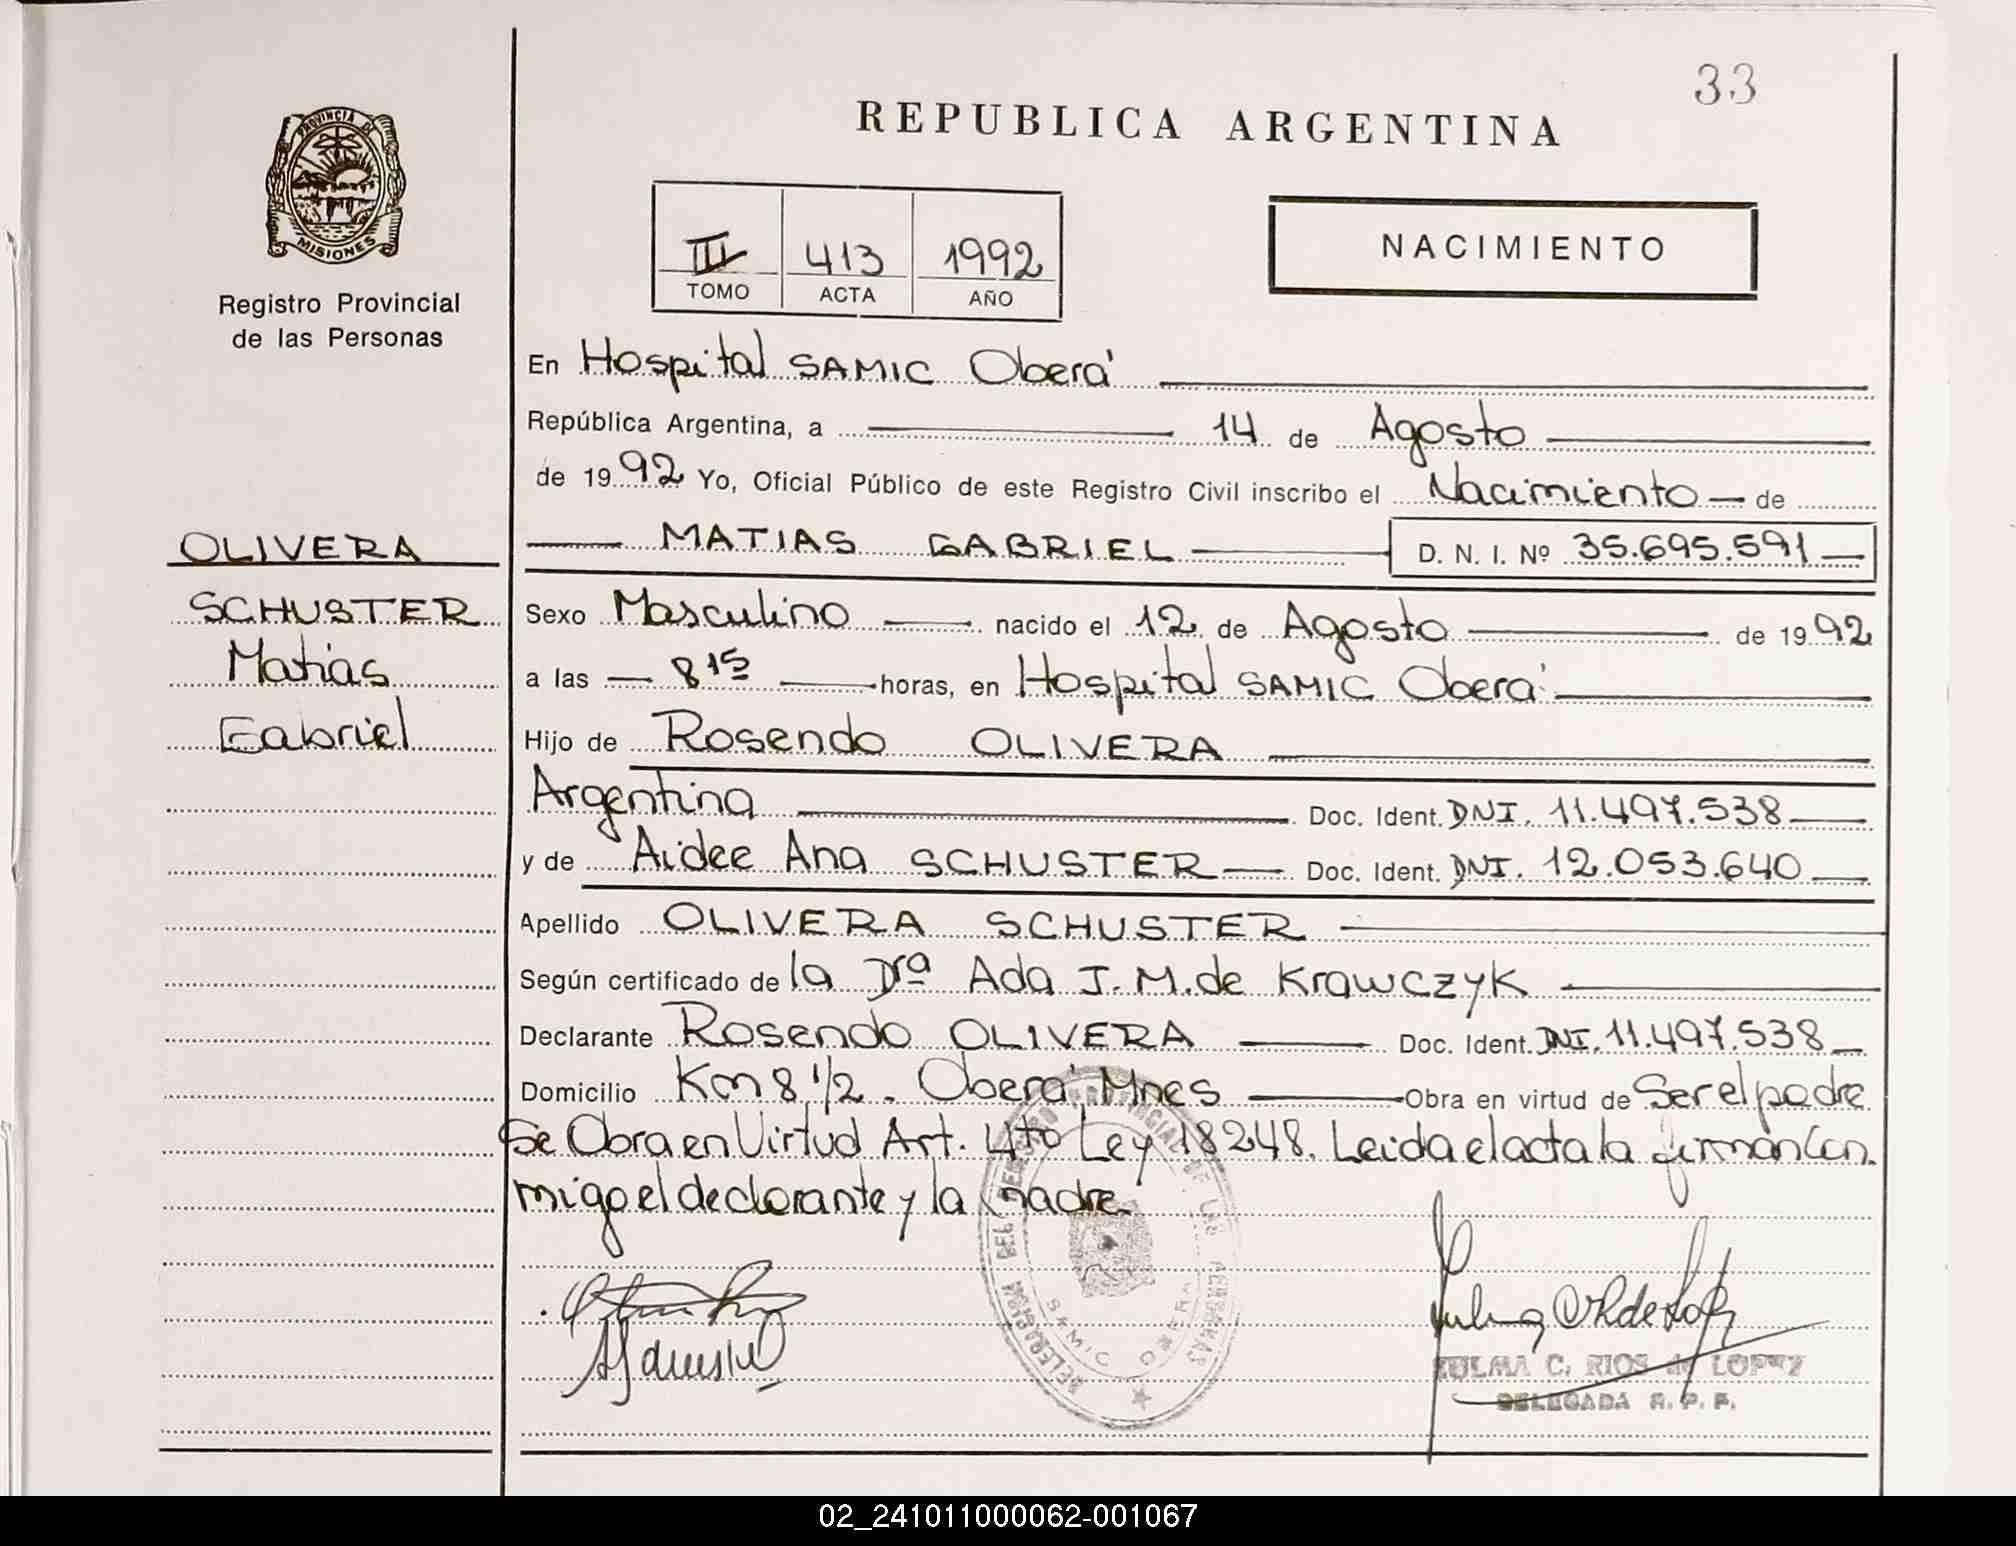 33
REPUBLICA ARGENTINA
PROVINCIA DE
MISIONES
Registro Provincial
de las Personas
III 413 1992
TOMO ACTA AÑO
NACIMIENTO
En Hospital SAMIC Oberá
República Argentina, a 14 de Agosto
de 1992 Yo, Oficial Público de este Registro Civil inscribo el Nacimiento de
MATIAS GABRIEL D. N. I. Nº 35.695.591
OLIVERA
SCHUSTER
Matias
Gabriel
Sexo Masculino nacido el 12 de Agosto de 1992
a las 8 15 horas, en Hospital SAMIC Oberá
Hijo de Rosendo OLIVERA
Argentina Doc. Ident. DNI. 11.497.538
y de Aidee Ana SCHUSTER Doc. Ident. DNI. 12.053.640
Apellido OLIVERA SCHUSTER
Según certificado de la Drª Ada J. M. de Krawczyk
Declarante Rosendo OLIVERA Doc. Ident. DNI. 11.497.538
Domicilio Km 8 1/2. Oberá, Mnes Obra en virtud de Ser el padre
Se Obra en Virtud Art. 4to Ley 18248. Leida el acta la firman con
migo el declarante y la madre
DELEGACION DEL REGISTRO PROVINCIAL DE LAS PERSONAS
SAMIC OBERA
ZULMA C. RIOS de LOPEZ
DELEGADA R. P. P.
02_241011000062-001067